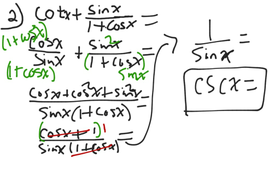 2) Cotx + sinx / 1+cosx =
(1+cosx) cosx / (1+cosx) sinx + sinx sinx / (1+cosx) sinx =
cosx+cos²x+sin²x / sinx(1+cosx) =
cosx + 1 1 / sinx(1+cosx) =
1 / sinx =
cscx =